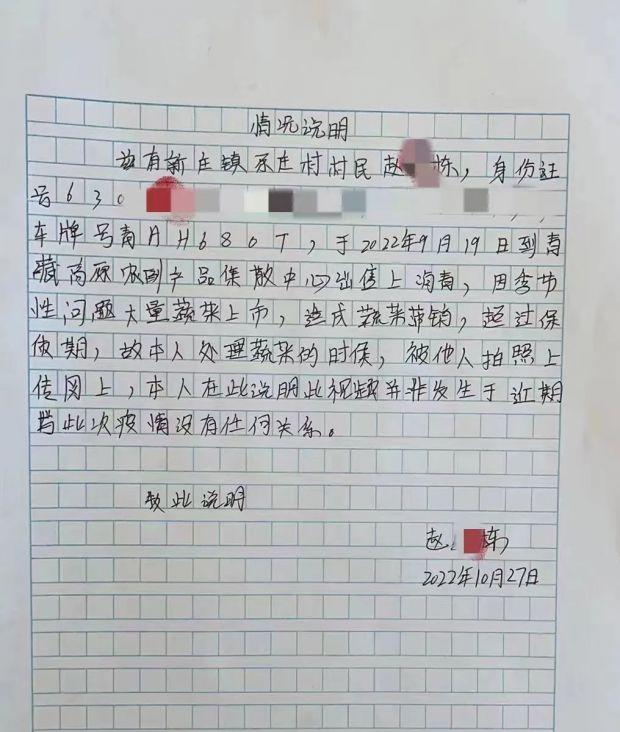 情况说明
兹有新庄镇乐庄村村民赵 栋，身份证
号630
车牌号青AH680T，于2022年9月19日到青
藏高原农副产品集散中心出售上海青，因季节
性问题大量蔬菜上市，造成蔬菜滞销，超过保
质期，故本人处理蔬菜的时候，被他人拍照上
传网上，本人在此说明此视频并非发生于近期
与此次疫情没有任何关系。
致此说明
赵 栋
2022年10月27日